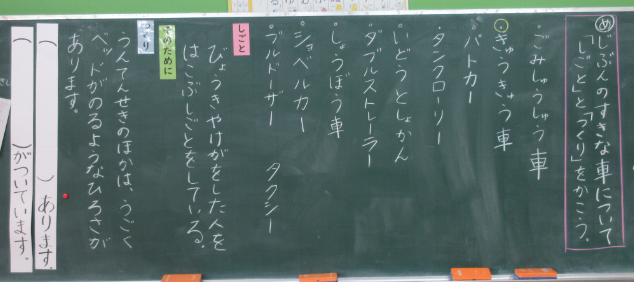 め じぶんのすきな車について
「しごと」と「つくり」をかこう。
・ごみしゅうしゅう車
・きゅうきゅう車
・パトカー
・タンクローリー
・いどうとしょかん
・ダブルストレーラー
・しょうぼう車
・ショベルカー
・ブルドーザー タクシー
しごと
びょうきやけがをした人を
はこぶしごとをしている。
そのために
つくり
うんてんせきのほかは、うごく
ベッドがのるようなひろさが
あります。
( ) あります。
( )がついています。